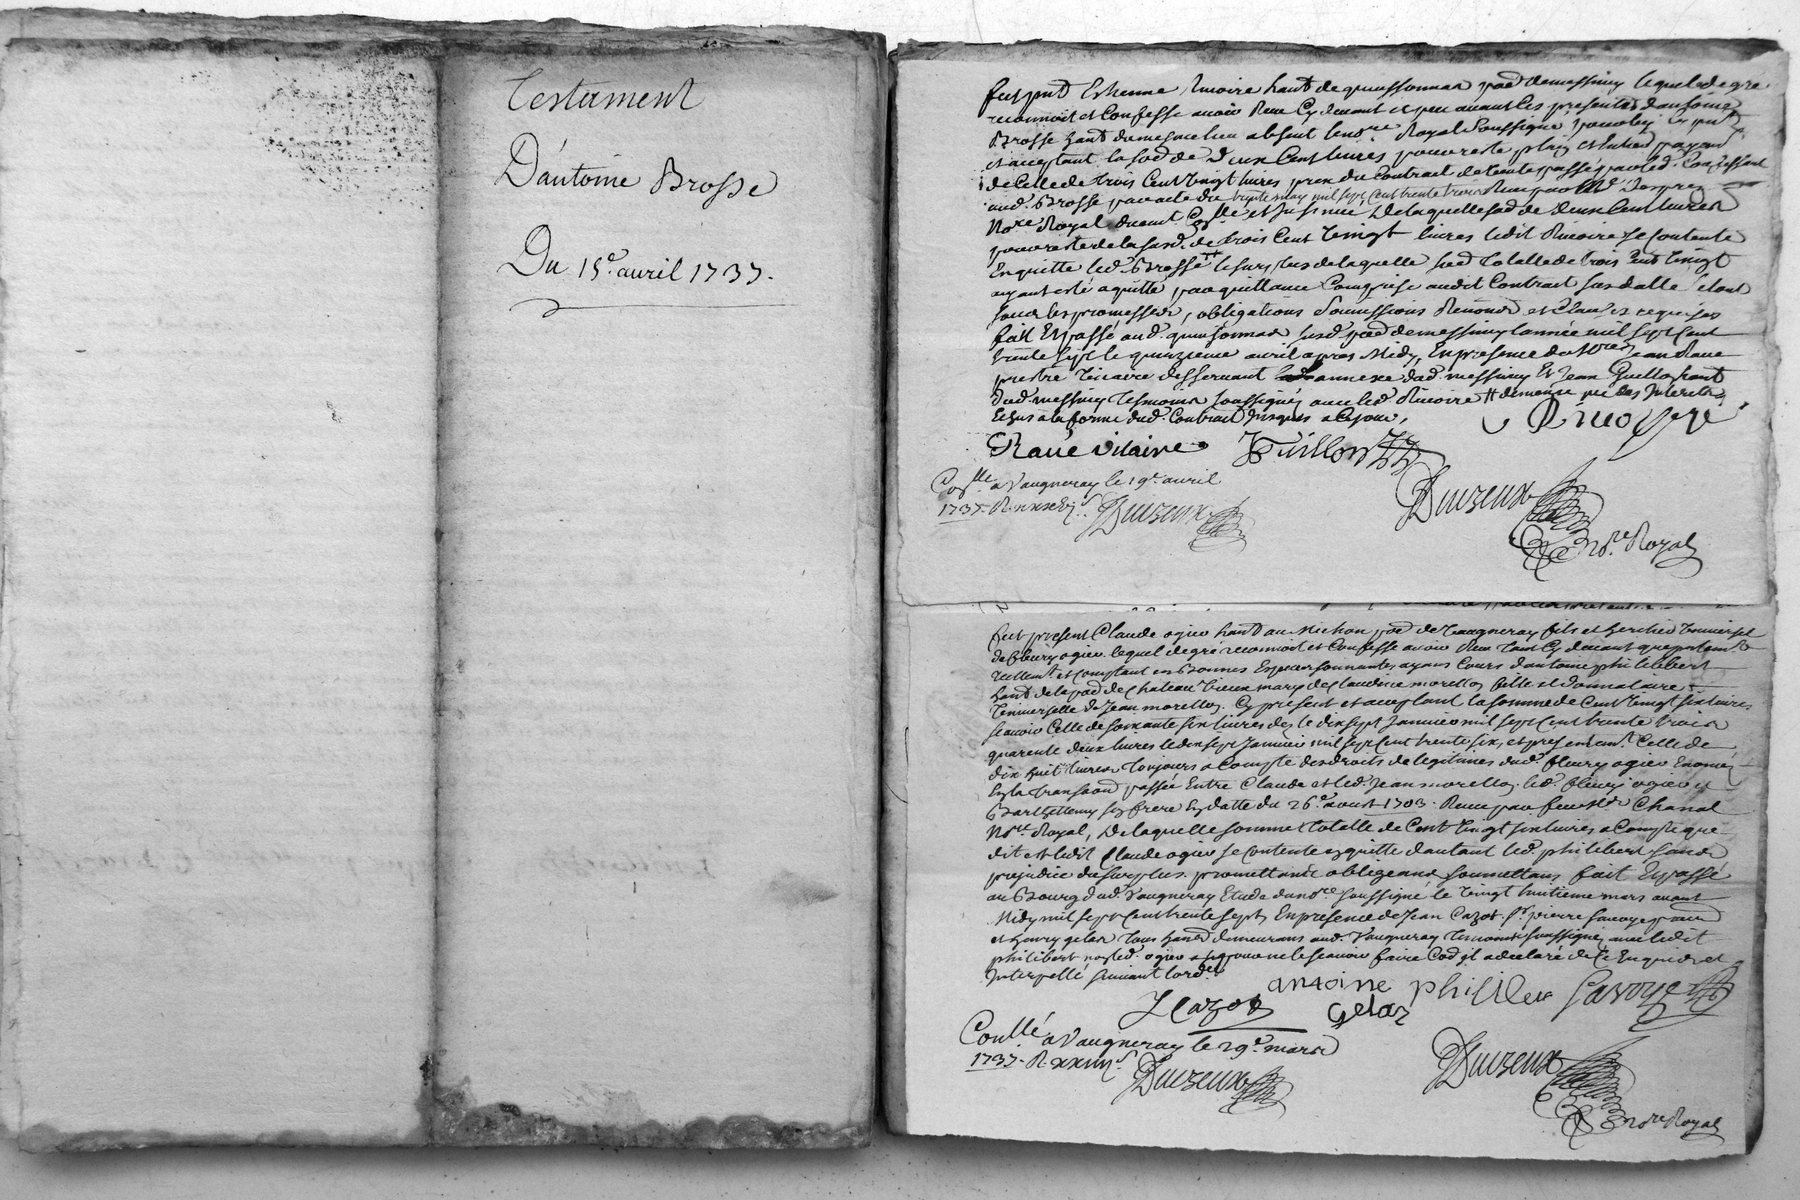 Testament
D'antoine Brosse
Du 15e. avril 1737.
fut pnt Estienne Rivoire hant de quinsonnas parr de messimy lequel de gre
reconnoit et Confesse avoir Reçu Cy devant et peu avant les présentes d'antoine
Brosse hant du mesme lieu absent le nore Royal Soussigné pour luy
et acceptant la so.e de deux Cent livres pour reste
de Celle de trois Cent vingt livres prix du Contract de vente passé par led. Confessant
aud. Brosse par acte du trente may mil sept Cent trente trois Reçu par Me
Nore Royal deument Coll.e et insinué, De laquelle so.e de deux Cent livres
pour reste de la susd. de trois Cent vingt livres ledit Rivoire se Contente
En quitte led. Brosse le surplus de laquelle so.e totalle de trois Cent vingt
ayant esté aquitté par quittance Comprise audit Contract
sous les promesses, obligations Soumissions Renonons et Clauses requises
fait Et passé aud. quinsonnas susd. parr de messimy l'année mil sept Cent
trente sept le quinzieme avril apres Midy, En presence de Mre Jean Raue
prestre vicaire desservant annexe dud. messimy Et Jean Guillon
dud. messimy tesmoins soussignés avec led. Rivoire # de mesme que des Interests
Echus a la forme dud. Contract jusques a Ce jour,
Rivoyre
Raue vicaire JGuillon
Collé a Vaugneray le 19e. avril
1737. R. Duizeux
Duizeux
nore Royal
fut present Claude ogier hant au Michon parr de Vaugneray fils et heritier Universel
de fleury ogier lequel de gré reconnoit et Confesse avoir Reçu tant Cy devant que presentemt
reellemt et comptant en Bonnes Especes sonnantes ayans Cours d'antoine philibert
hant de la parr de Chateau vieux mary de Claudine morellon fille et donnataire
Universelle de Jean morellon Cy present et acceptant la somme de Cent vingt six livres
sçavoir Celle de soixante six livres des le dix sept Janvier mil sept Cent trente trois
quarente deux livres le dix sept Janvier mil sept Cent trente six, et presentemt. Celle de
dix huit livres toujours a Compte des droits de legitimes dud. fleury ogier
En la transaon passée Entre Claude et led. Jean morellon led. fleury ogier et
Barthellemy son frere En datte du 26e aoust 1703. Reçue par feu Me Chanal
Nore Royal, De laquelle somme totalle de Cent vingt six livres a Compte que
dit est ledit Claude ogier se Contente en quitte d'autant led. philibert sans
prejudice du surplus. promettant obligeans soumettans fait Et passé
au Bourg dud. Vaugneray Etude du nore soussigné le vingt huitieme mars avant
Midy mil sept Cent trente sept, En presence de Jean Cazot Sr pierre Savoye
et henry gelas tous hans demeurans aud. Vaugneray tesmoins soussignés avec ledit
philibert non led. ogier pour ne le sçavoir faire Comme il a declaré de Ce Enquis et
Interpellé suivant l'ordce
antoine philibert Savoye
JCazot gelas
Conllé a Vaugneray le 29e. mars
1737. R. Duizeux
Duizeux
nore Royal